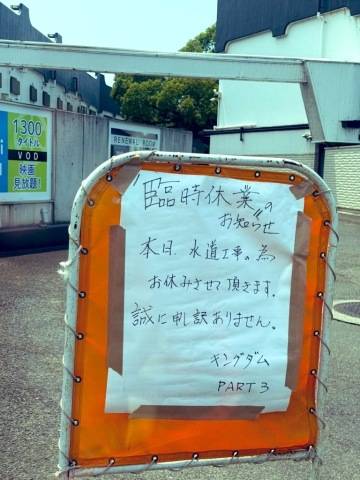 1300
タイトル
VOD
映画
見放題!
RENEWAL ROOM
"臨時休業"の
お知らせ
本日、水道工事の為
お休みさせて頂きます。
誠に申し訳ありません。
キングダム
PART 3